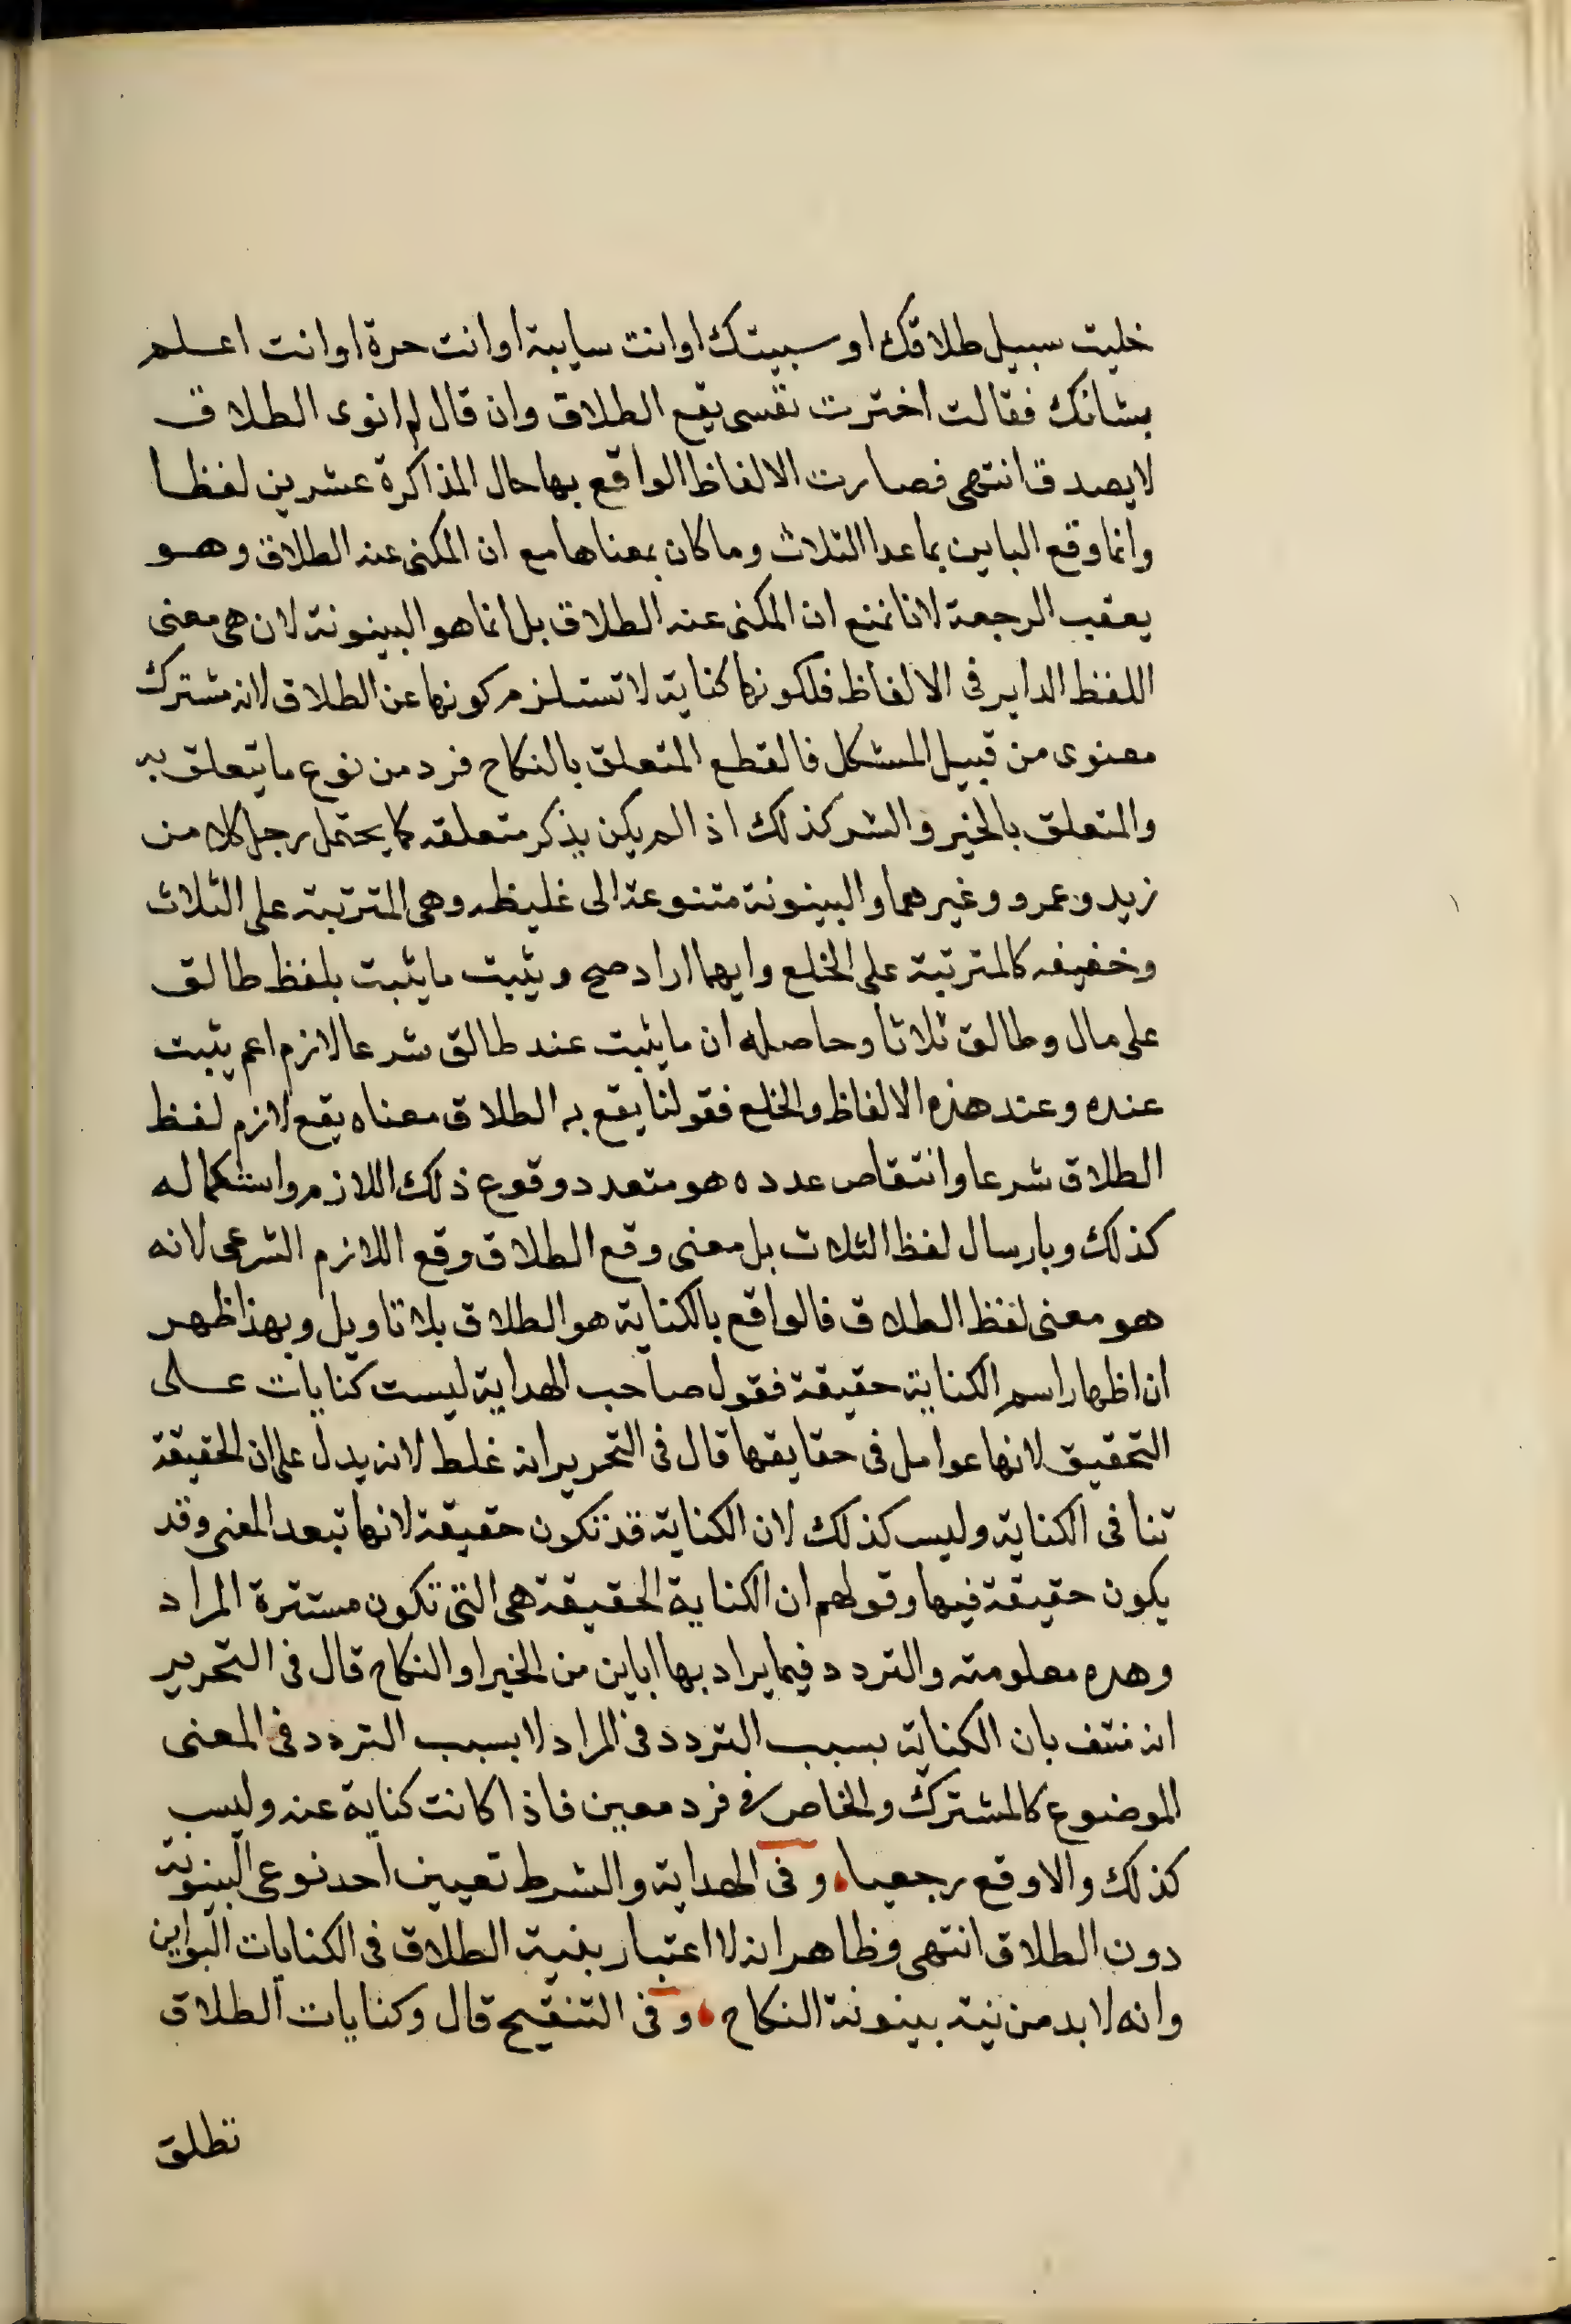 خليت سبيل طلاقك او سبيتك او انت سايبة او انت حرة او انت اعلم
بشانك فقالت اخترت نفسى يقع الطلاق وان قال لم انوى الطلاق
لا يصدق انتهى فصارت الالفاظ الواقع بها حال المذاكرة عشرين لفظا
وانما وقع الباين بما عدا الثلاث وما كان بمعناها مع ان المكنى عنه الطلاق وهو
يعقب الرجعة لانا نمنع ان المكنى عنه الطلاق بل انما هو البينونة لان هى معنى
اللفظ الداير فى الالفاظ فلكونها كناية لا تستلزم كونها عن الطلاق لانه مشترك
معنوى من قبيل المشكل فالقطع المتعلق بالنكاح فرد من نوع ما يتعلق به
والمتعلق بالخير والشر كذلك اذا لم يكن يذكر متعلقه كما يحتمل رجل كلا من
زيد وعمرو وغيرهما والبينونة متنوعة الى غليظه وهى المترتبة على الثلاث
وخفيفه كالمترتبة على الخلع وايهما اراد صح ويثبت ما يثبت بلفظ طالق
على مال وطالق ثلاثا وحاصله ان ما يثبت عند طالق شرعا لازم اعم يثبت
عنده وعند هذه الالفاظ والخلع فقولنا يقع به الطلاق معناه يقع لازم لفظ
الطلاق شرعا وانتقاص عدده هو متعدد وقوع ذلك اللازم واستكماله
كذلك وبارسال لفظ الثلاث بل معنى وقع الطلاق وقع اللازم الشرعى لانه
هو معنى لفظ الطلاق فالواقع بالكناية هو الطلاق بلا تاويل وبهذا ظهر
ان اظهار اسم الكناية حقيقة فقول صاحب الهداية ليست كنايات على
التحقيق لانها عوامل فى حقايقها قال فى التحرير انه غلط لانه يدل على ان الحقيقة
تنافى الكناية وليس كذلك لان الكناية قد تكون حقيقة لانها تبعد المعنى وقد
يكون حقيقة فيها وقولهم ان الكناية الحقيقة هى التى تكون مستترة المراد
وهده معلومته والتردد فيما يراد بها اباين من الخير او النكاح قال فى التحرير
انه منتف بان الكناية بسبب التردد فى المراد لا بسبب التردد فى المعنى
الموضوع كالمشترك والخاص فى فرد معين فاذا كانت كناية عنه وليس
كذلك والا وقع رجعيا وفى الهداية والشرط تعيين احد نوعى البينونة
دون الطلاق انتهى وظاهر انه لا اعتبار بنية الطلاق فى الكنايات البواين
وانه لا بد من نية بينونة النكاح وفى التنقيح قال وكنايات الطلاق
تطلق